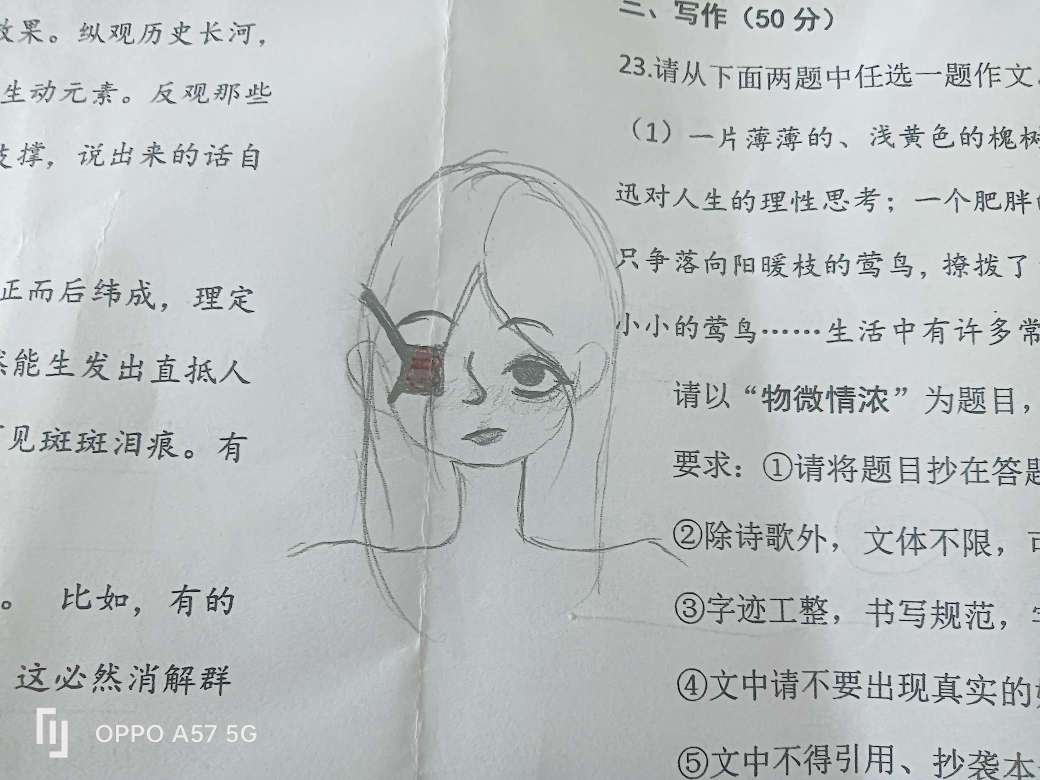 效果。纵观历史长河，
生动元素。反观那些
支撑，说出来的话自
正而后纬成，理定
然能生发出直抵人
可见斑斑泪痕。有
。 比如，有的
这必然消解群
二、写作（50 分）
23.请从下面两题中任选一题作文。
（1）一片薄薄的、浅黄色的槐树
迅对人生的理性思考；一个肥胖的
只争落向阳暖枝的莺鸟，撩拨了
小小的莺鸟……生活中有许多常
请以“物微情浓”为题目，
要求：①请将题目抄在答题
②除诗歌外，文体不限，可
③字迹工整，书写规范，字
④文中请不要出现真实的
⑤文中不得引用、抄袭本
OPPO A57 5G